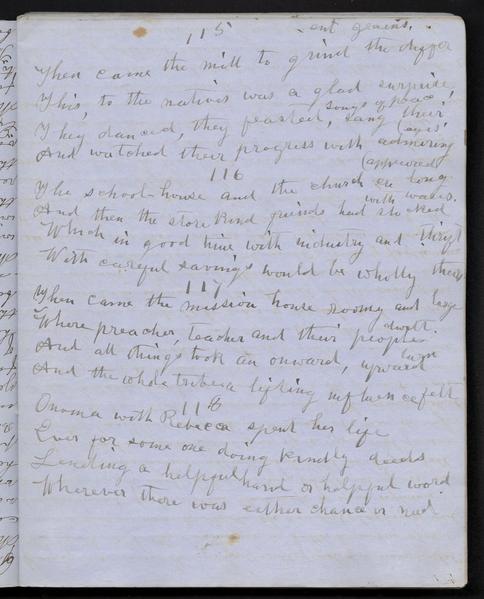 115
ent grains.
Then came the mill to grind the differ
This, to the natives was a glad surprise,
songs of peace,
They danced, they feasted, sang their
eyes
And watched their progress with admiring
(appeared
116
The school-house and the church ere long
with wares.
And then the store kind friends had stocked
Which in good time with industry and thrift
With careful savings would be wholly theirs
117
Then came the mission house roomy and large
dwelt.
Where preacher, teacher and their peoples
turn
And all things took an onward, upward
And the whole tribe a lifting influence felt
118
Onoma with Rebecca spent her life
Ever for some one doing kindly deeds
Lending a helpful hand or helpful word
Wherever there was either chance or need.